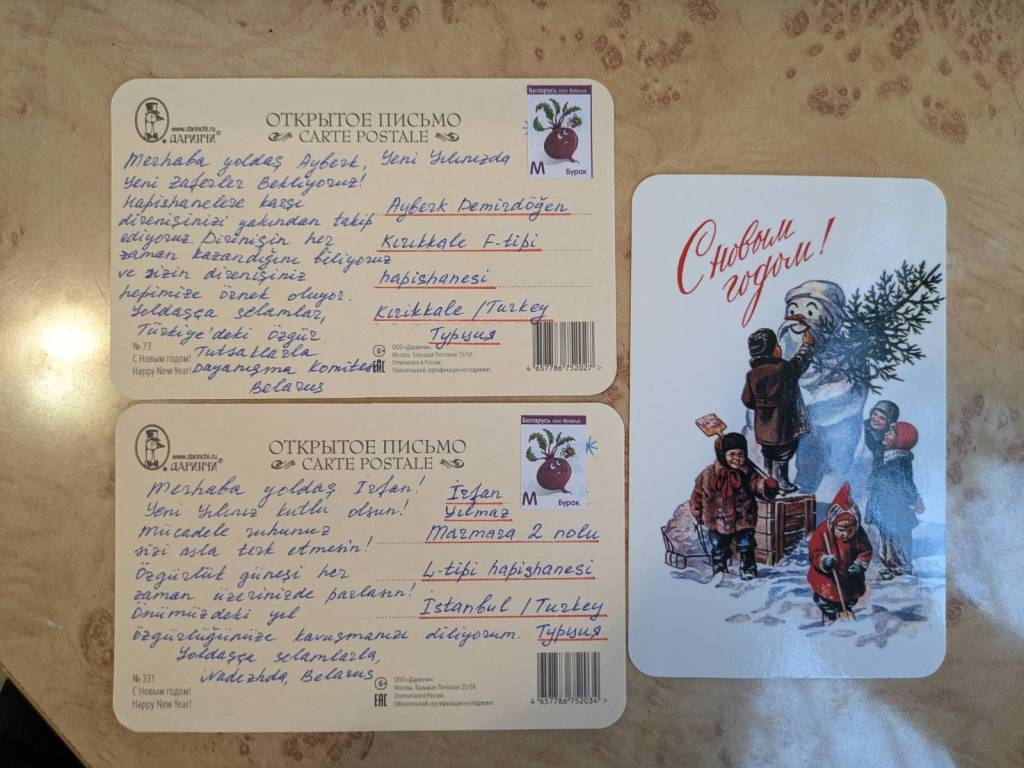 www.darinchi.ru
ДАРИНЧИ®
ОТКРЫТОЕ ПИСЬМО
CARTE POSTALE
Беларусь 2021 Belarus
M Бурак
Merhaba yoldaş Ayberk, Yeni Yılınızda
Yeni Zaferler Bekliyoruz!
Hapishanelere karşı
direnişinizi yakından takip
ediyoruz. Direnişin her
zaman kazandığını biliyoruz
ve sizin direnişiniz
hepimize örnek oluyor.
Yoldaşça selamlar,
Türkiye'deki özgür
Tutsaklarla
Dayanışma Komitesi
Belarus
Ayberk Demirdöğen
Kırıkkale F-tipi
hapishanesi
Kırıkkale /Turkey
Турция
№ 73
С Новым годом!
Happy New Year!
6+
EAC
ООО «Даринчи».
Москва, Большая Почтовая 55/59.
Отпечатано в России.
Обязательной сертификации не подлежит.
4 657786 752027 >
www.darinchi.ru
ДАРИНЧИ®
ОТКРЫТОЕ ПИСЬМО
CARTE POSTALE
Беларусь 2021 Belarus
M Бурак
Merhaba yoldaş İrfan!
Yeni Yılınız kutlu olsun!
Mücadele ruhunuz
sizi asla terk etmesin!
Özgürlük güneşi her
zaman üzerinizde parlasın!
Önümüzdeki yıl
özgürlüğünüze kavuşmanızı diliyorum.
Yoldaşça selamlarla,
Nadezhda, Belarus
İrfan
Yılmaz
Marmara 2 nolu
L-tipi hapishanesi
İstanbul /Turkey
Турция
№ 331
С Новым годом!
Happy New Year!
6+
EAC
ООО «Даринчи».
Москва, Большая Почтовая 55/59.
Отпечатано в России.
Обязательной сертификации не подлежит.
4 657786 752034 >
С новым
годом!